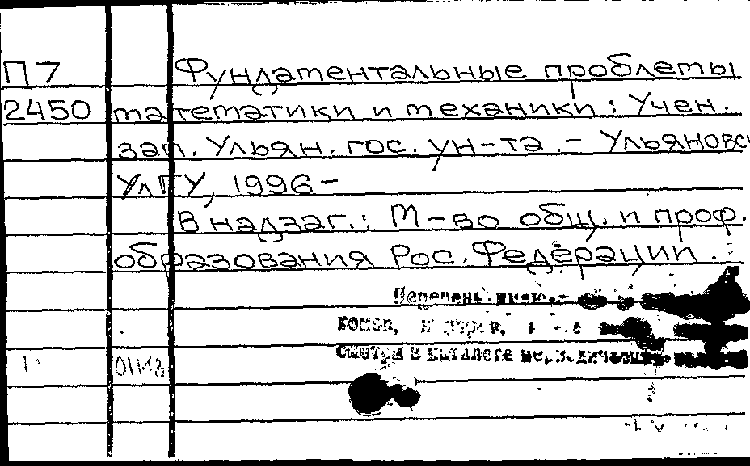 П7 Фундаментальные проблемы
2450 математики и механики: Учен.
зап. Ульян. гос. ун-та. - Ульяновск
УлГУ, 1996-
В надзаг.: М-во общ. и проф.
образования Рос. Федерации.
Перечень
томов,
смотри в каталоге